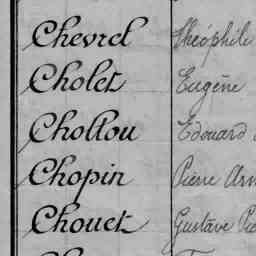 Chevrel Théophile
Cholet Eugène
Chollou Edouard
Chopin Pierre
Chouet Gustave